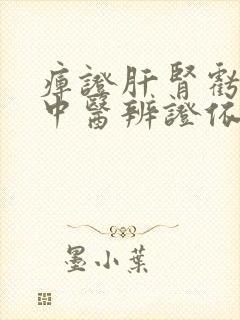 痺證肝腎虧
中醫辨證依
墨小葉